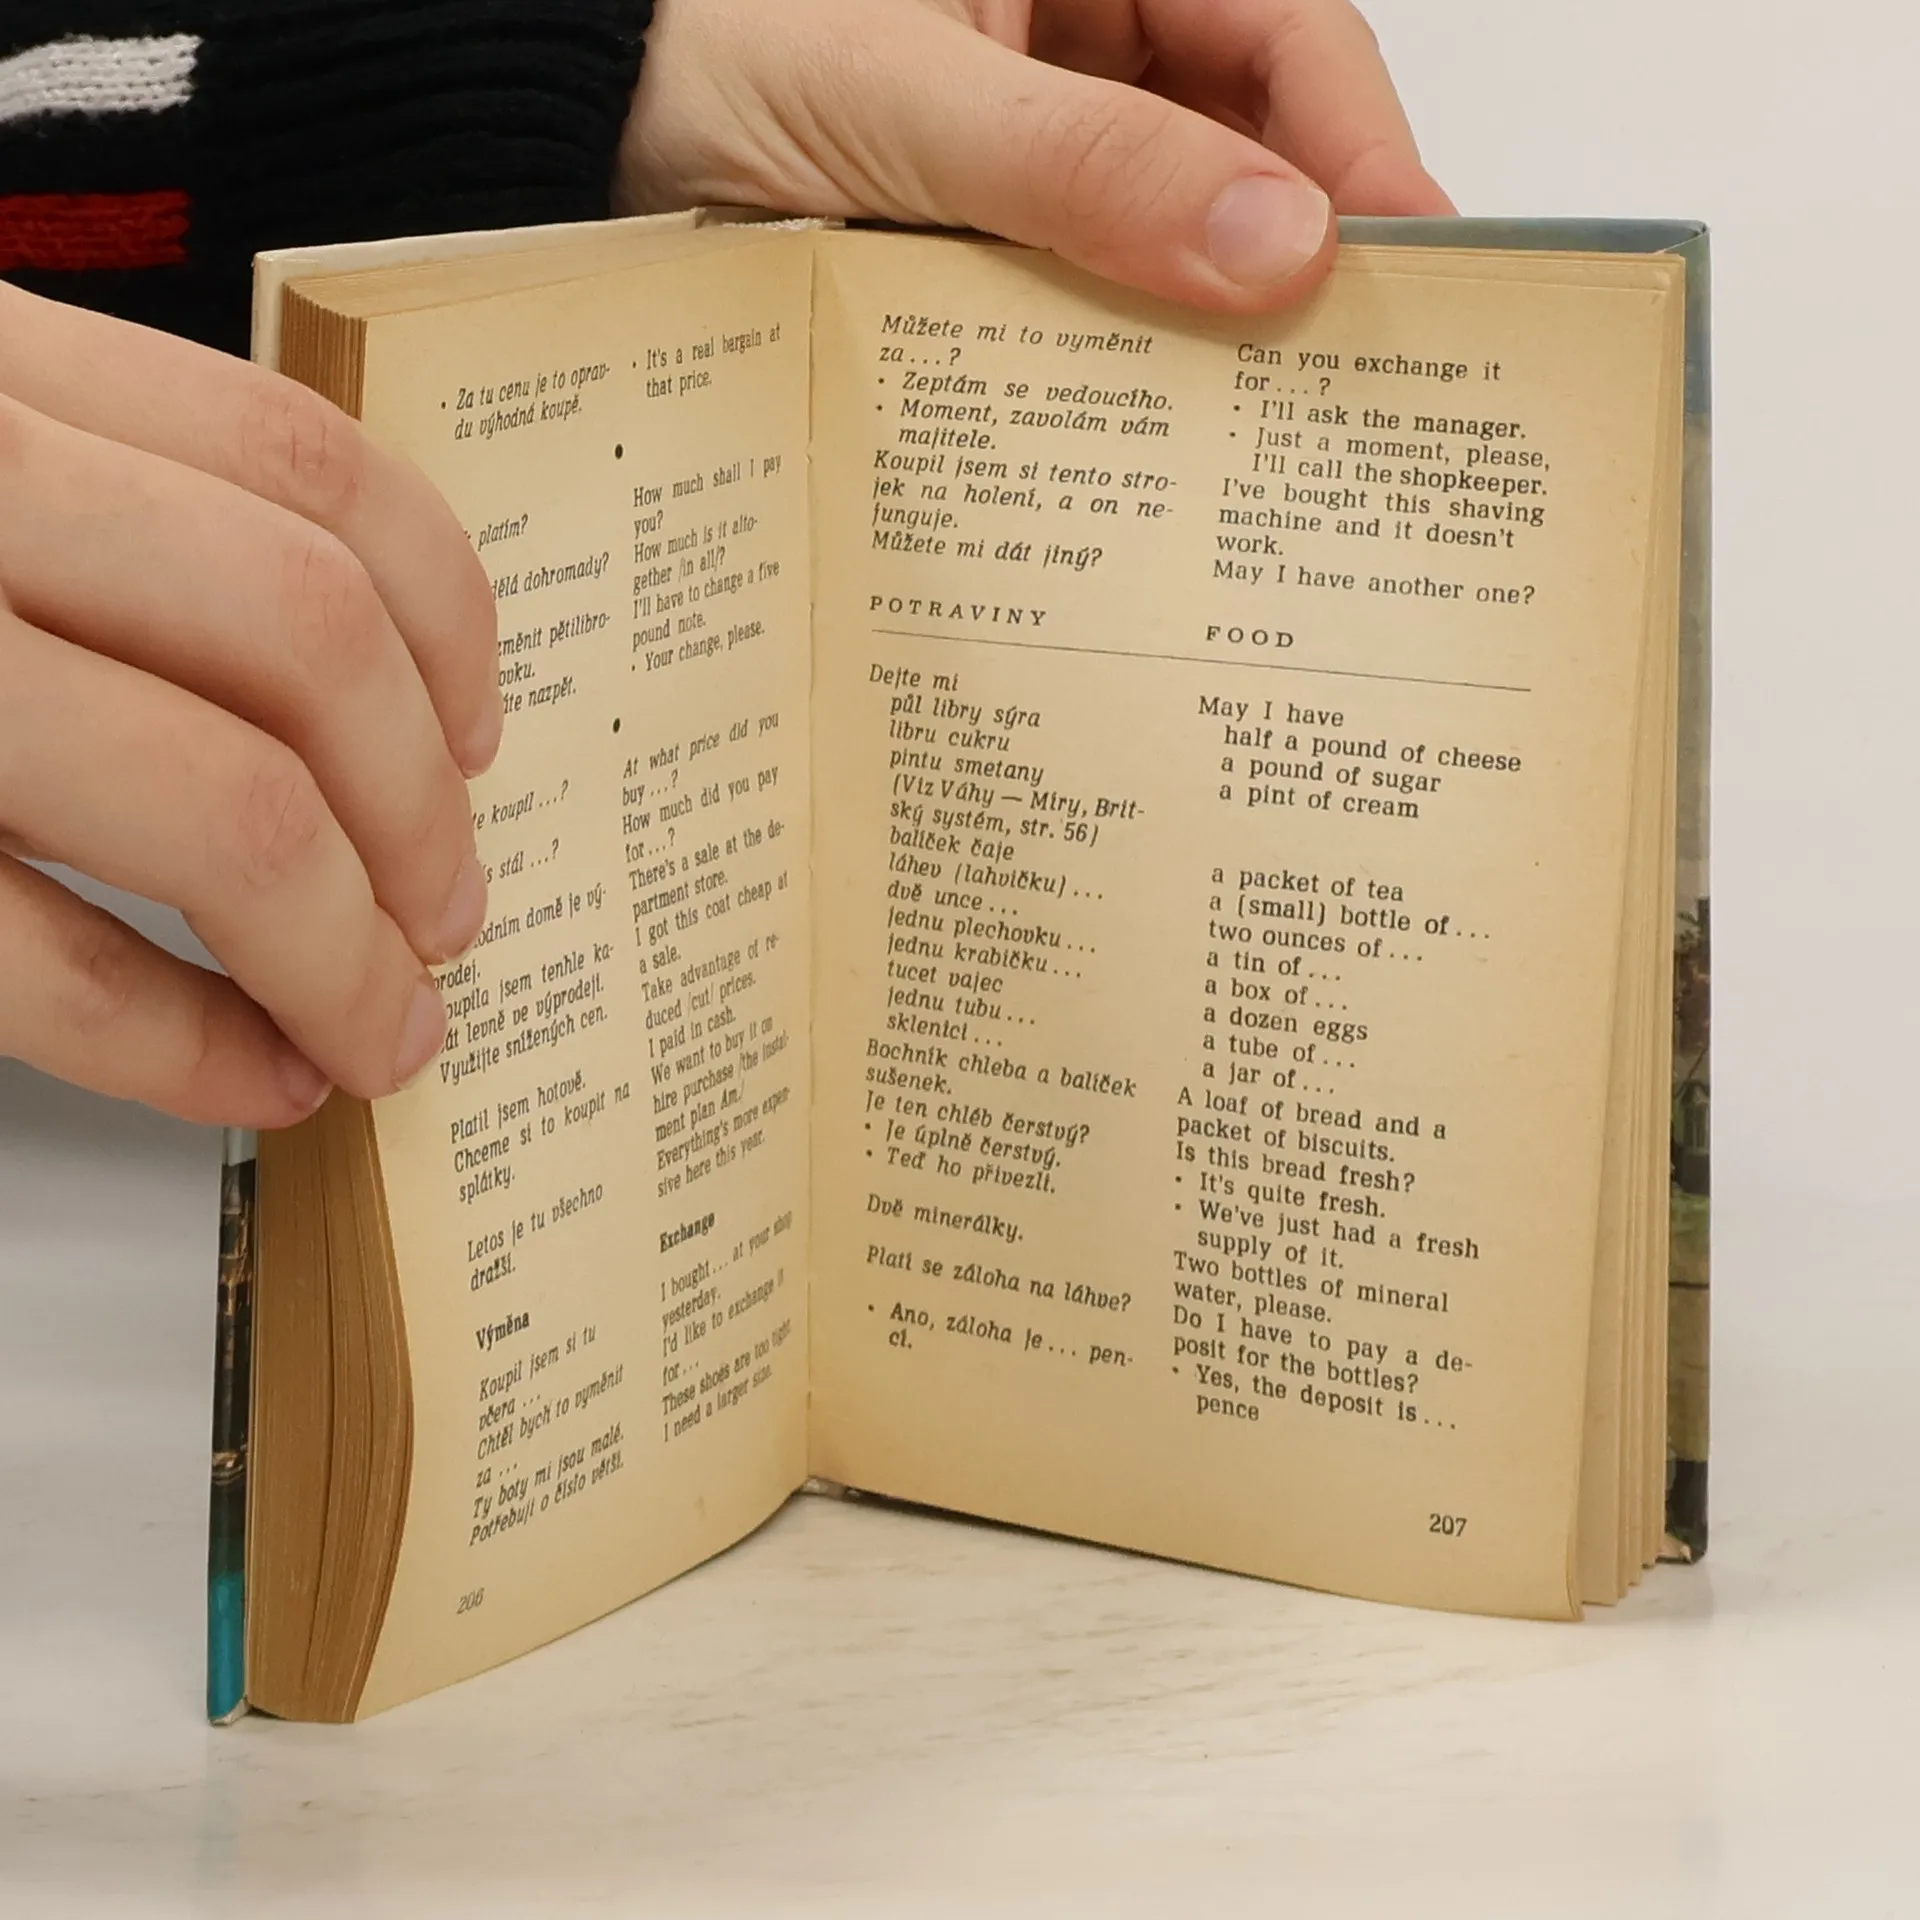 • Za tu cenu je to oprav-
du výhodná koupě.
platím?
dělá dohromady?
změnit pětilibro-
ovku.
nazpět.
koupil ...?
stál ...?
domě je vý-
prodej.
jsem tenhle ka-
levně ve výprodeji.
Využijte snížených cen.
Platil jsem hotově.
Chceme si to koupit na
splátky.
Letos je tu všechno
dražší.
Výměna
Koupil jsem si tu
včera ...
Chtěl bych to vyměnit
za ...
Ty boty mi jsou malé.
Potřebuji o číslo větší.
206
• It's a real bargain at
that price.
•
How much shall I pay
you?
How much is it alto-
gether /in all/?
I'll have to change a five
pound note.
• Your change, please.
•
At what price did you
buy ...?
How much did you pay
for ...?
There's a sale at the de-
partment store.
I got this coat cheap at
a sale.
Take advantage of re-
duced /cut/ prices.
I paid in cash.
We want to buy it on
hire purchase /the instal-
ment plan Am./
Everything's more expen-
sive here this year.
Exchange
I bought ... at your shop
yesterday.
I'd like to exchange it
for ...
These shoes are too tight
I need a larger size.
Můžete mi to vyměnit
za ... ?
• Zeptám se vedoucího.
• Moment, zavolám vám
majitele.
Koupil jsem si tento stro-
jek na holení, a on ne-
funguje.
Můžete mi dát jiný?
Can you exchange it
for ... ?
• I'll ask the manager.
• Just a moment, please,
I'll call the shopkeeper.
I've bought this shaving
machine and it doesn't
work.
May I have another one?
POTRAVINY
FOOD
Dejte mi
půl libry sýra
libru cukru
pintu smetany
(Viz Váhy — Míry, Brit-
ský systém, str. 56)
balíček čaje
láhev (lahvičku) ...
dvě unce ...
jednu plechovku ...
jednu krabičku ...
tucet vajec
jednu tubu ...
sklenici ...
Bochník chleba a balíček
sušenek.
Je ten chléb čerstvý?
• Je úplně čerstvý.
• Teď ho přivezli.
Dvě minerálky.
Platí se záloha na láhve?
• Ano, záloha je ... pen-
cí.
May I have
half a pound of cheese
a pound of sugar
a pint of cream
a packet of tea
a (small) bottle of ...
two ounces of ...
a tin of ...
a box of ...
a dozen eggs
a tube of ...
a jar of ...
A loaf of bread and a
packet of biscuits.
Is this bread fresh?
• It's quite fresh.
• We've just had a fresh
supply of it.
Two bottles of mineral
water, please.
Do I have to pay a de-
posit for the bottles?
• Yes, the deposit is ...
pence
207